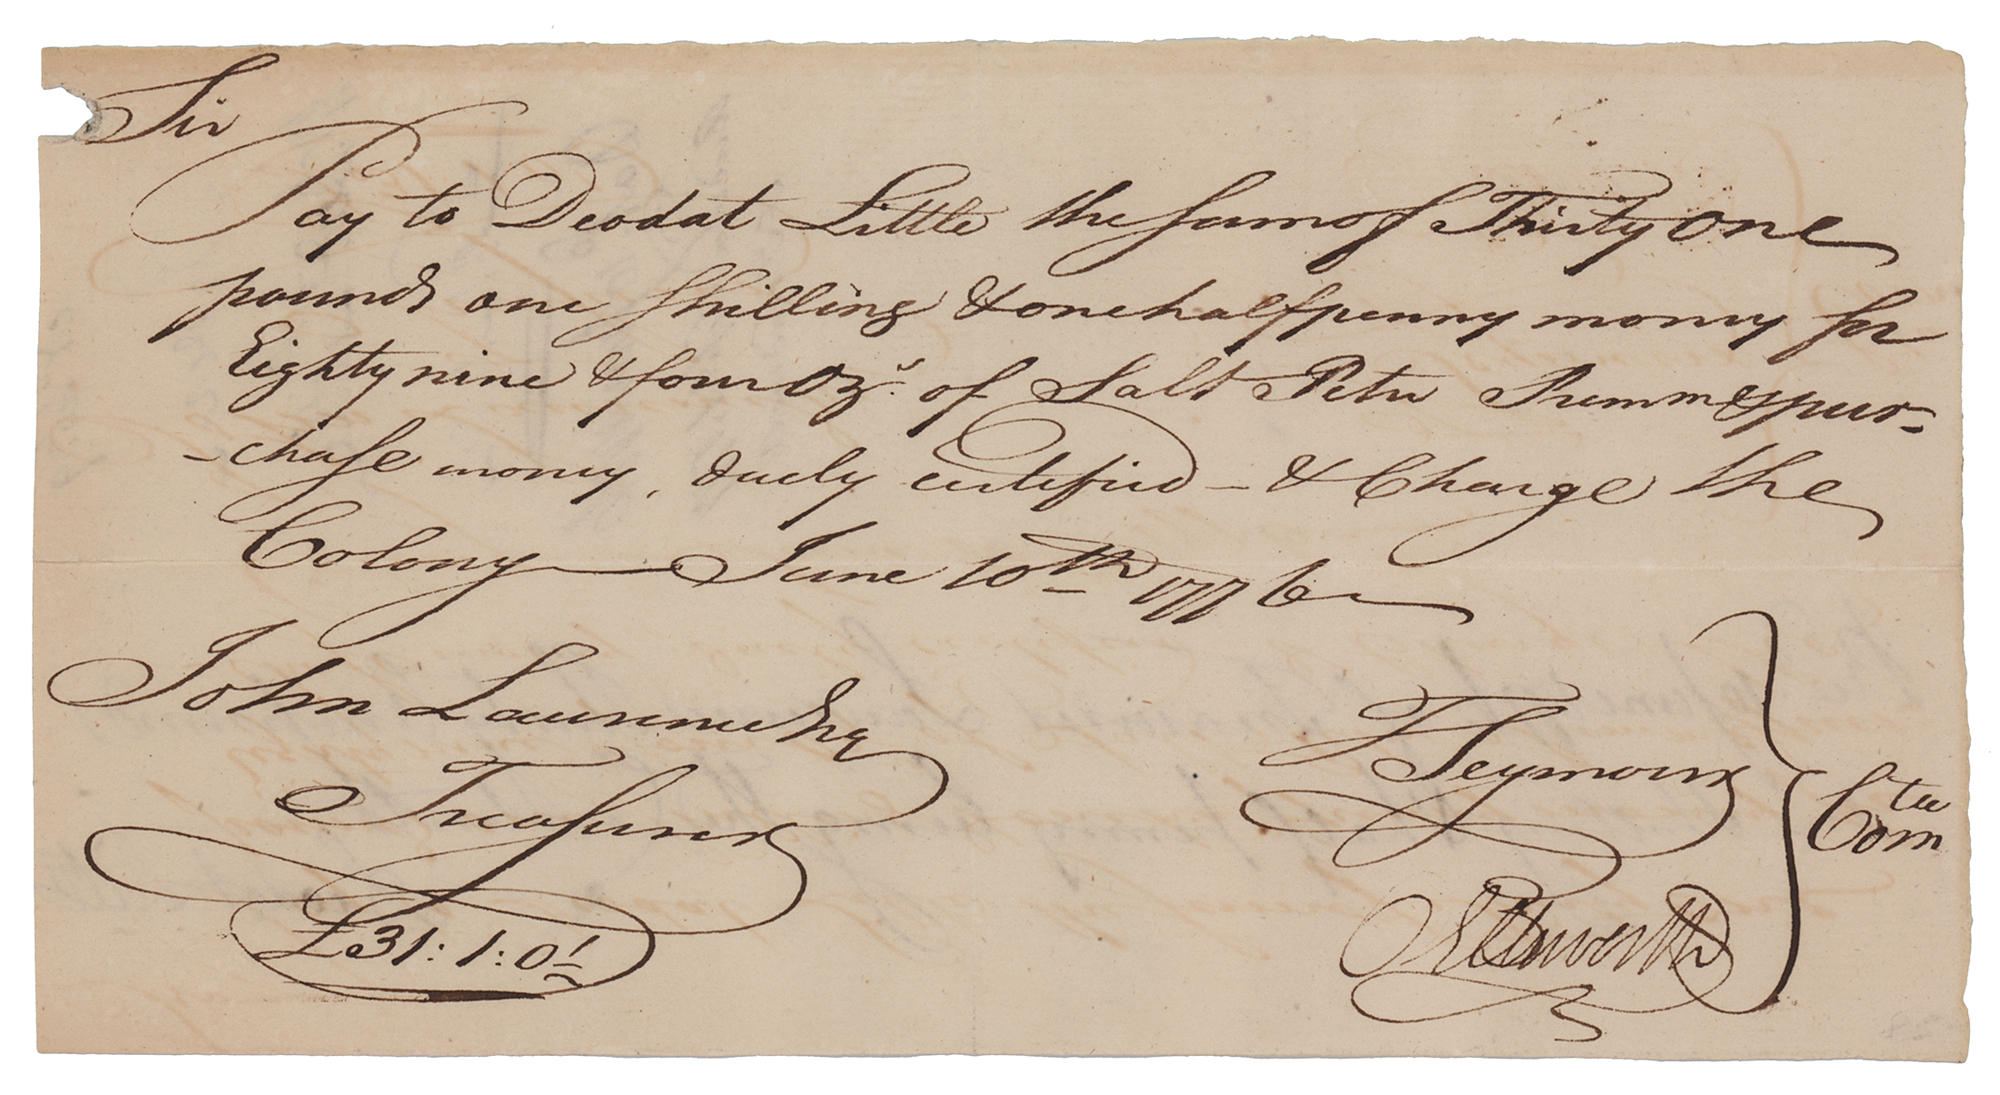 Sir
Pay to Deodat Little the sum of Thirty One
pounds one shilling & one halfpenny money for
Eighty nine & four Ozs. of Salt Petre Premm & pur-
-chase money, duely certified - & Charge the
Colony June 10th 1776
John Lawrence Esq
Treasurer
£31:1:0½
T Seymour
Ellsworth
Comtee